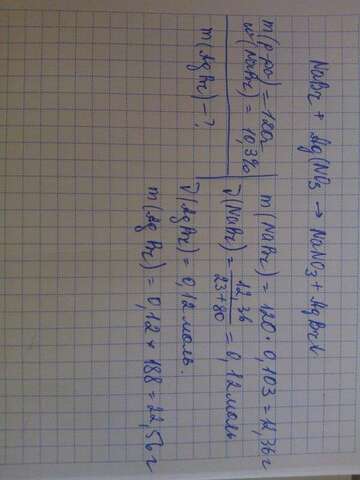 NaBr + Ag(NO3 → NaNO3 + AgBr↓
m(р-ра) = 120г
w(NaBr) = 10,3%
m(AgBr) - ?
m(NaBr) = 120 · 0,103 = 12,36 г
ν(NaBr) = 12,36 / 23+80 = 0,12 моль
ν(AgBr) = 0,12 моль.
m(AgBr) = 0,12 * 188 = 22,56 г